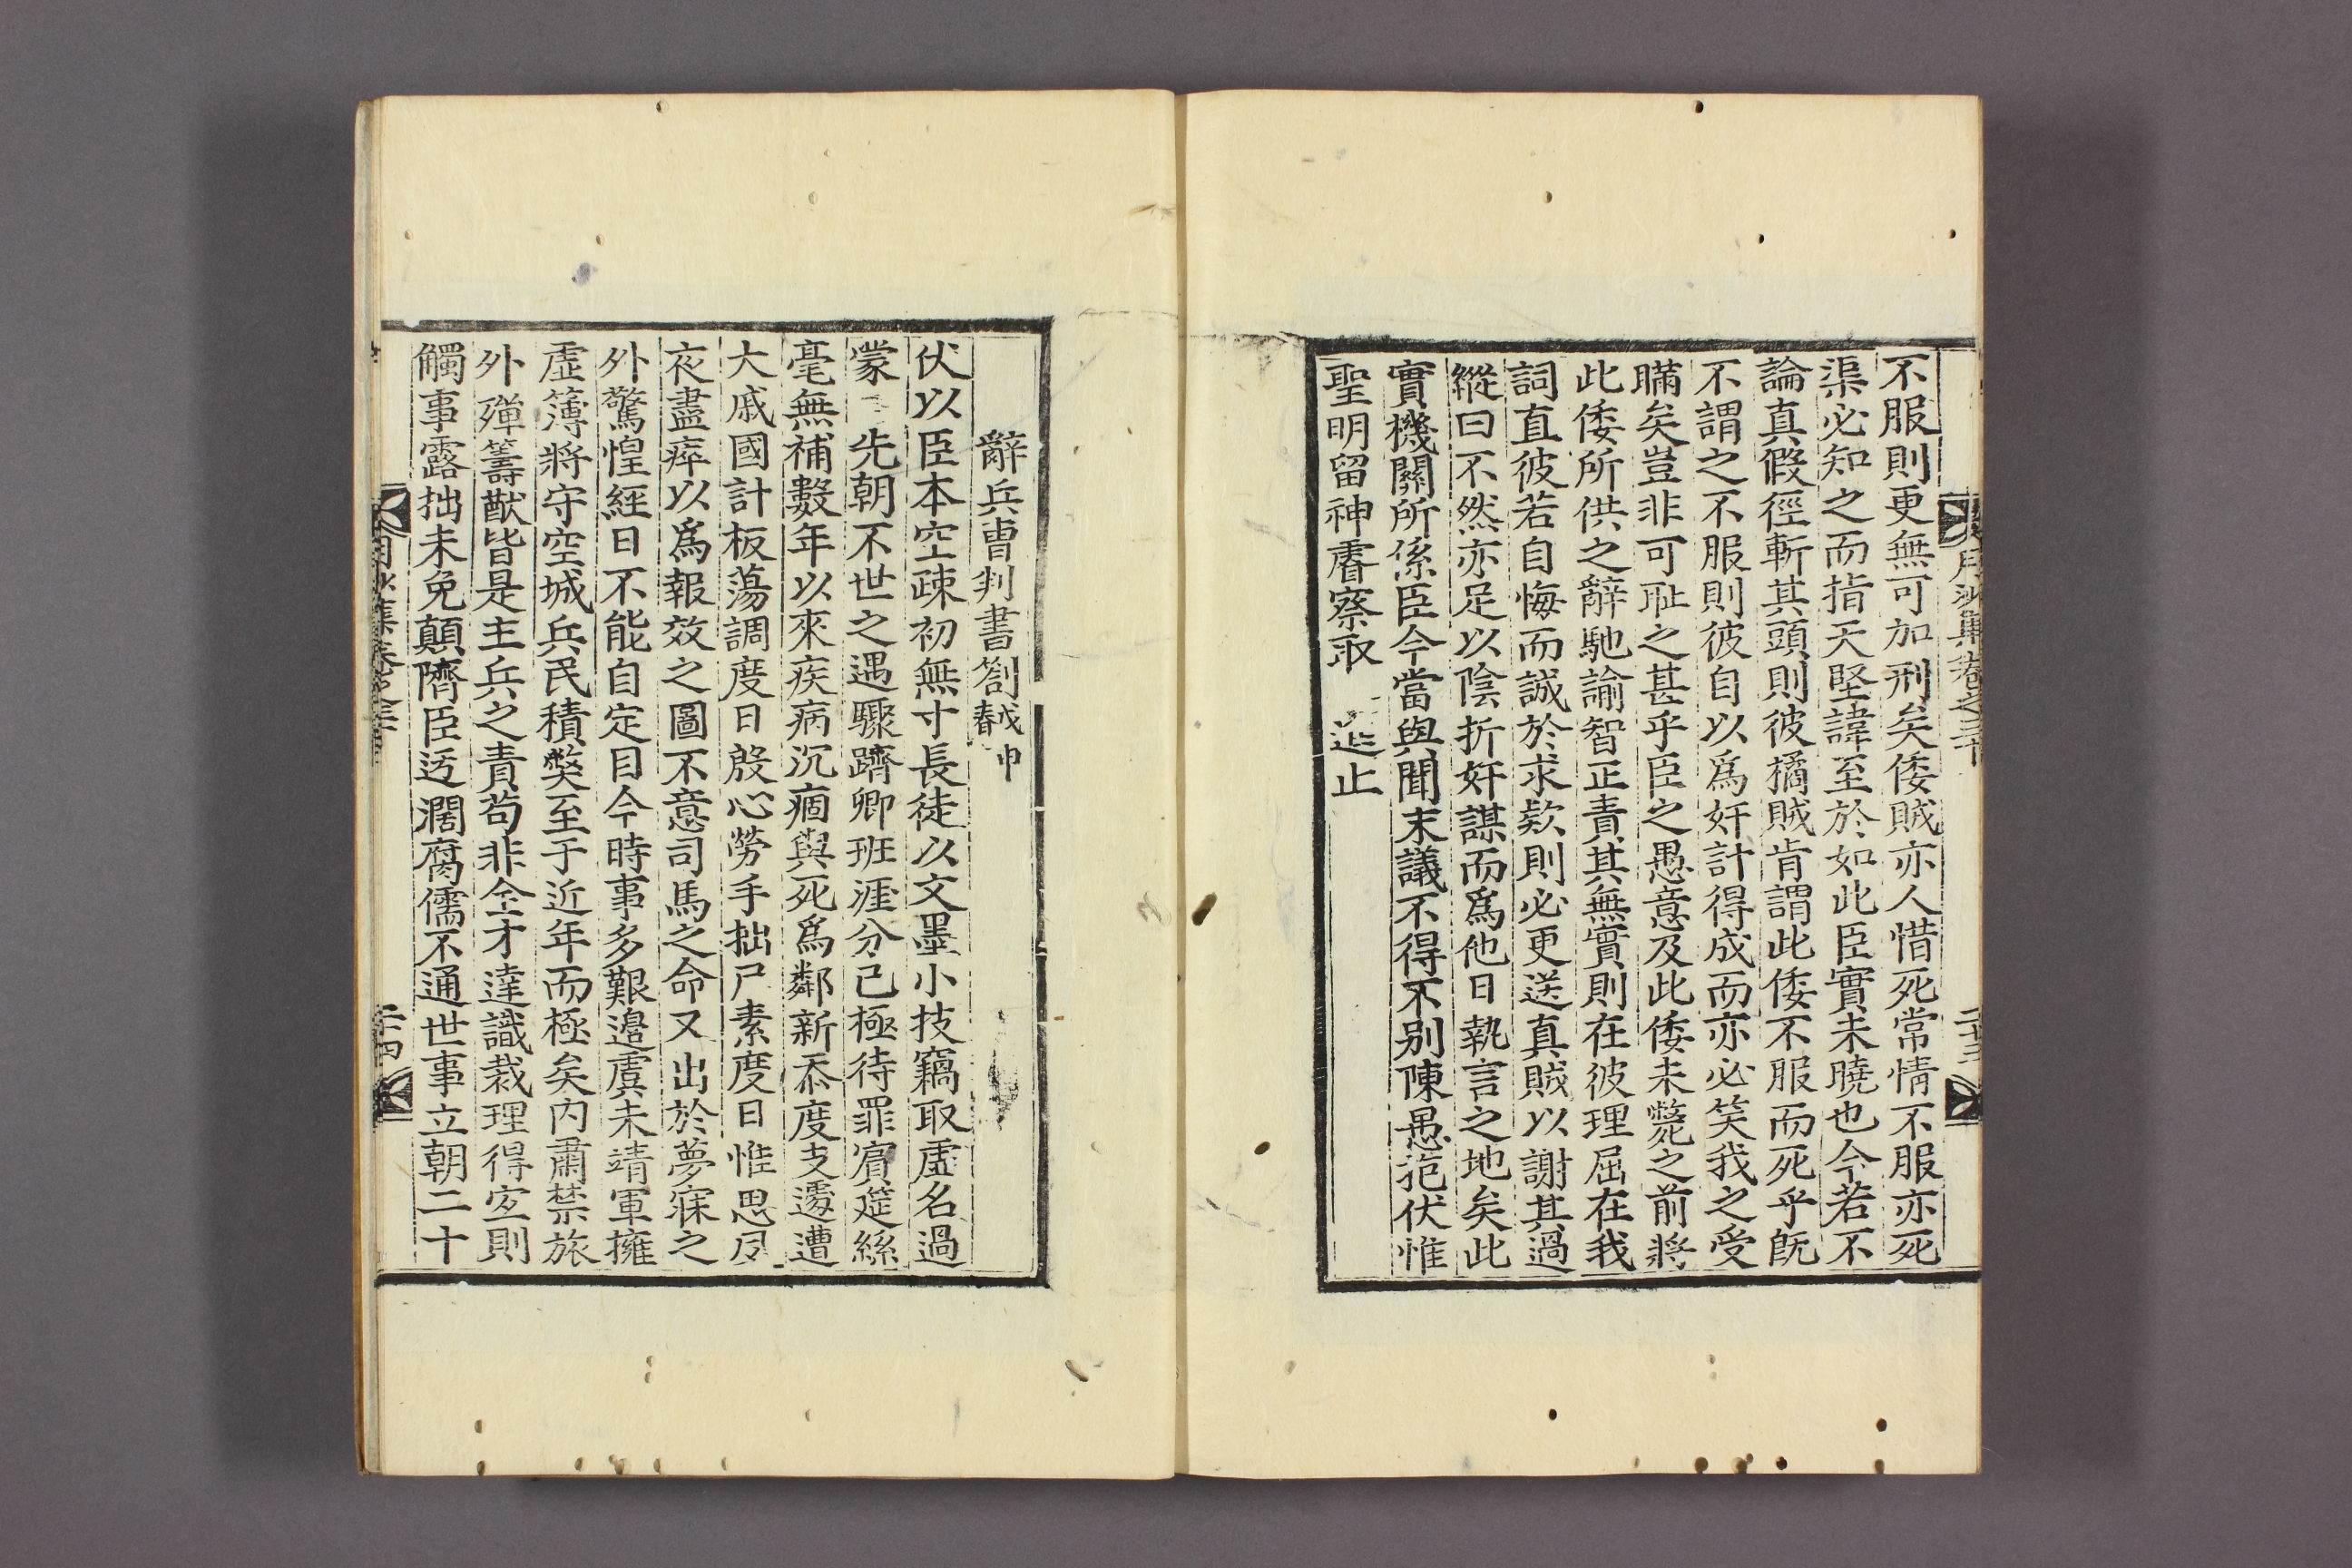 不服則更無可加刑矣倭賊亦人惜死常情不服亦死
渠必知之而指天堅諱至於如此臣實未曉也今若不
論真假徑斬其頭則彼擒賊肯謂此倭不服而死乎旣
不謂之不服則彼自以爲奸計得成而亦必笑我之受
瞞矣豈非可耻之甚乎臣之愚意及此倭未斃之前將
此倭所供之辭馳諭智正責其無實則在彼理屈在我
詞直彼若自悔而誠於求欵則必更送真賊以謝其過
縱曰不然亦足以陰折奸謀而爲他日執言之地矣此
實機關所係臣今當與聞末議不得不别陳愚菢伏惟
聖明留神睿察取 進止
辭兵曹判書箚 戊申
伏以臣本空疎初無寸長徒以文墨小技竊取虛名過
蒙 先朝不世之遇驟躋卿班涯分已極待罪賔筵絲
毫無補數年以來疾病沉痼與死爲鄰新忝度支遽遭
大戚國計板蕩調度日殷心勞手拙尸素度日惟思夙
夜盡瘁以爲報效之圖不意司馬之命又出於夢寐之
外驚惶經日不能自定目今時事多艱邊虞未靖軍擁
虛簿將守空城兵民積獘至于近年而極矣內肅禁旅
外殫籌猷皆是主兵之責苟非全才達識裁理得宜則
觸事露拙未免顛隮臣迃濶腐儒不通世事立朝二十
月沙集卷之三十
二十三
二十四